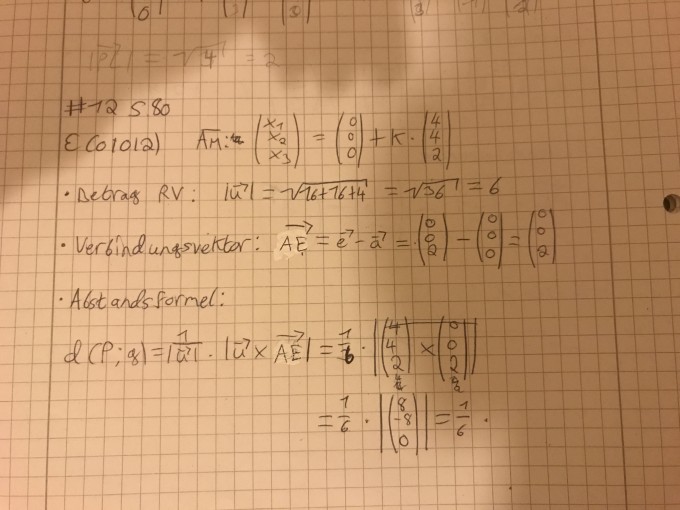 |PL| = √4 = 2
#12 S.80
E(0|0|2) AM: (x₁ x₂ x₃) = (0 0 0) + k · (4 4 2)
· Betrag RV: |u⃗| = √16+16+4 = √36 = 6
· Verbindungsvektor: AE⃗ = e⃗ - a⃗ = (0 0 2) - (0 0 0) = (0 0 2)
· Abstandsformel:
d(P;g) = 1/|u⃗| · |u⃗ × AE⃗| = 1/6 · |(4 4 2) × (0 0 2)|
= 1/6 · |(8 -8 0)| = 1/6 ·